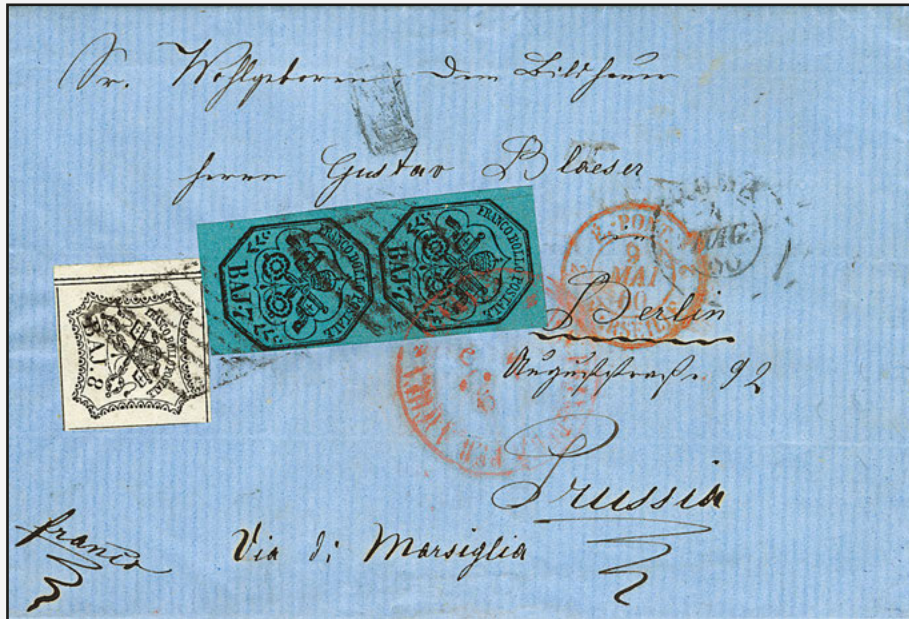 Sr. Wohlgeboren dem Bildhauer
Herrn Gustav Blaeser
FRANCO BOLLO POSTALE
BAJ 7
FRANCO BOLLO POSTALE
BAJ 7
FRANCO BOLLO POSTALE
BAJ. 8
E. PONT.
9
MAI
60
MARSEILLE
MAG.
60
Berlin
Auguststraße 92
Prussia
franco
Via di Marsiglia